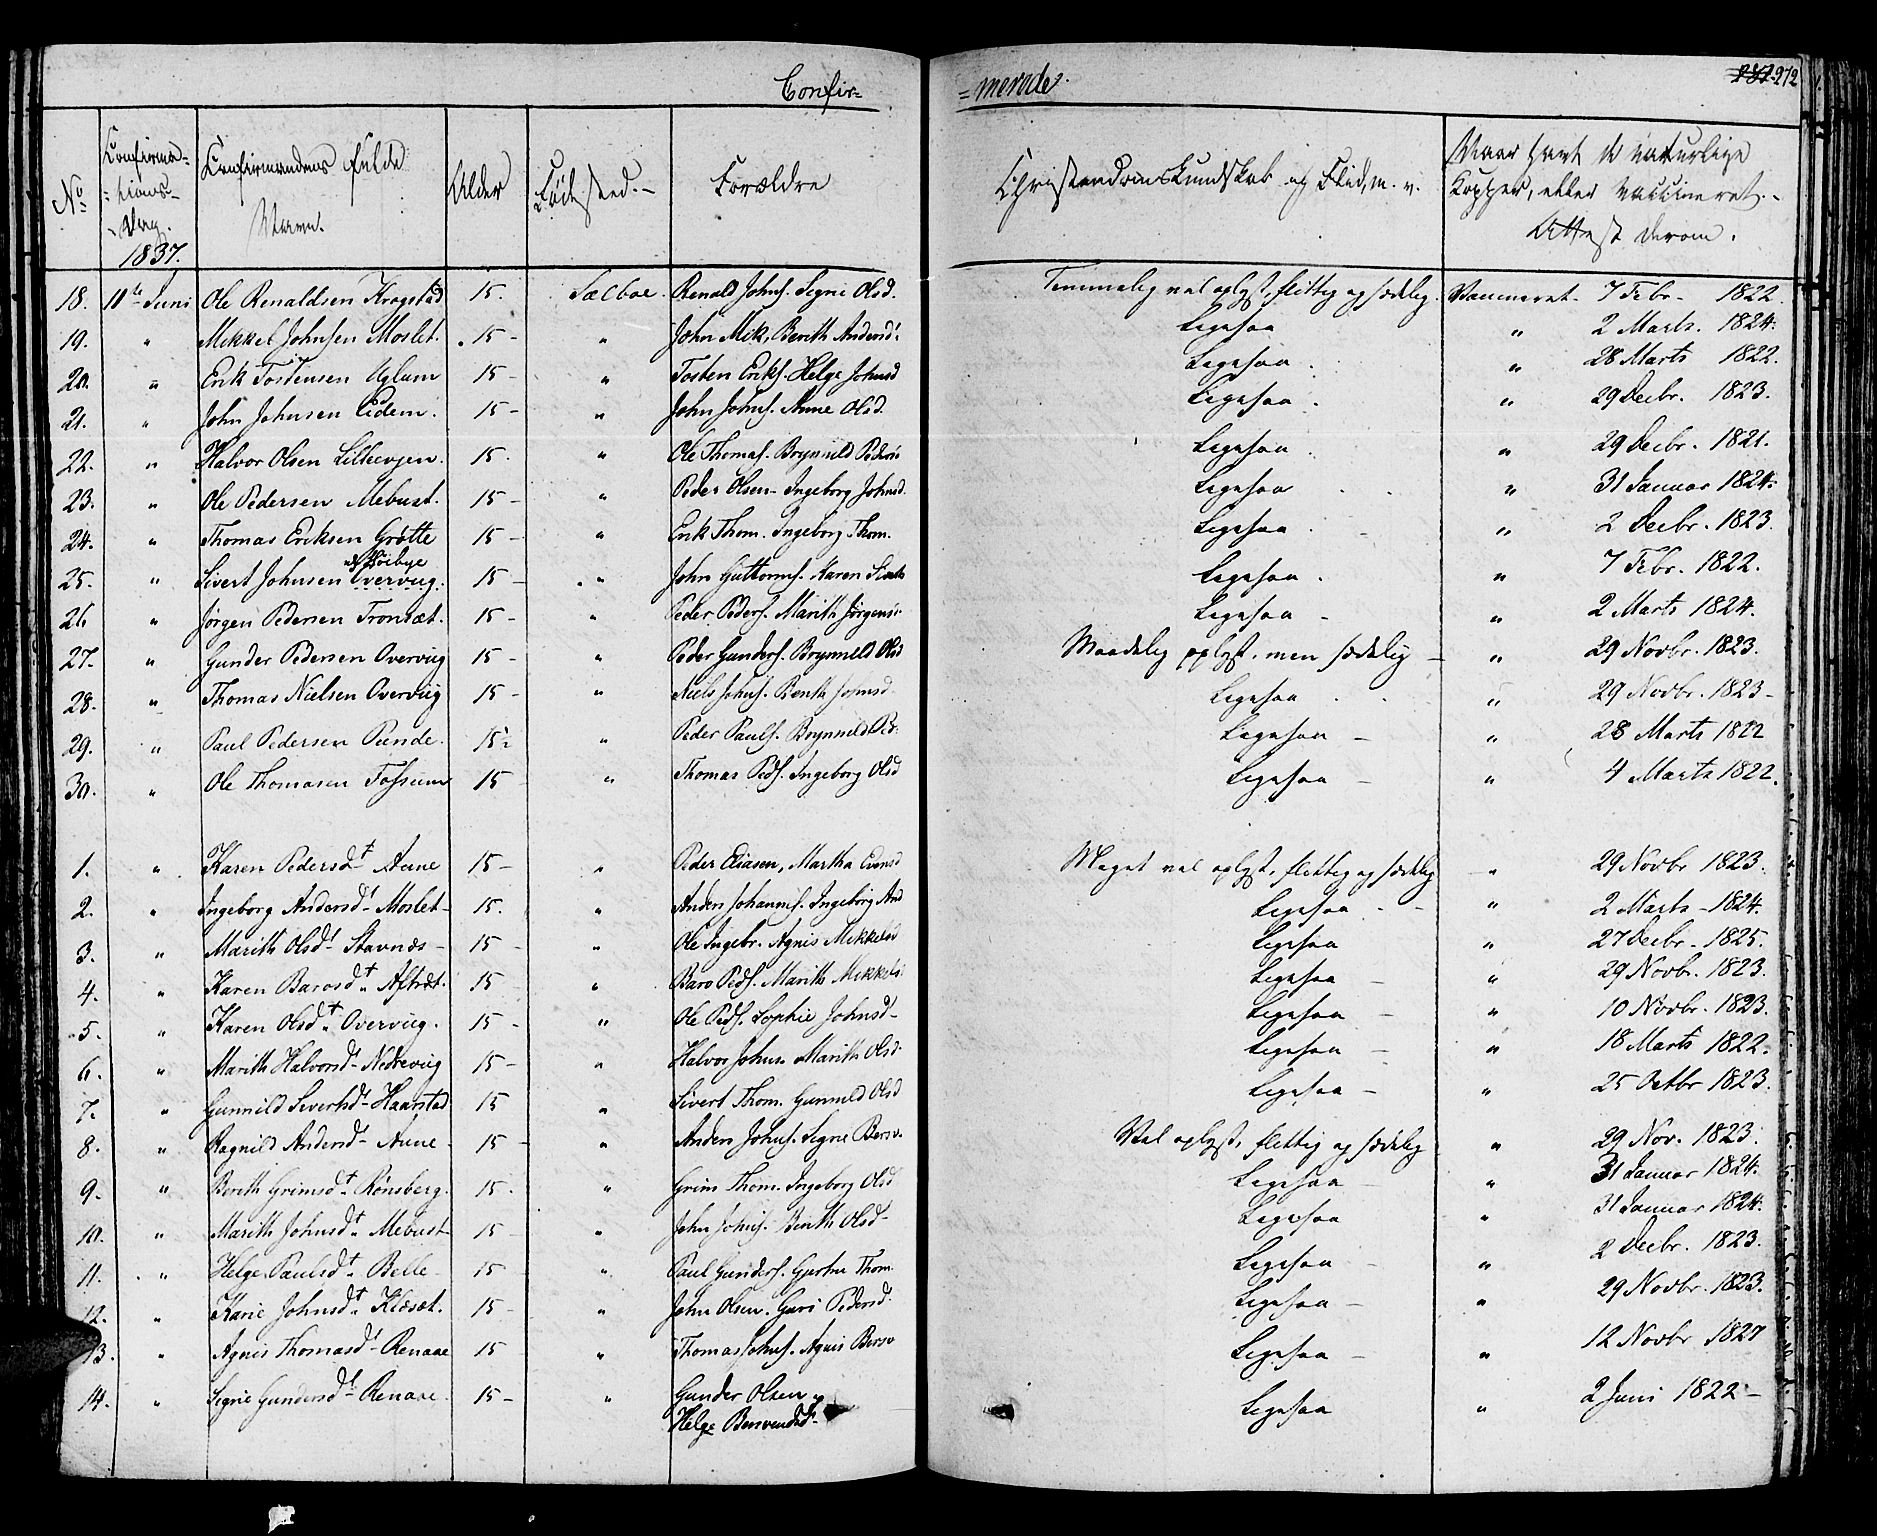 Confir= =merede. 272
No
Confirma=
=tions-
Dag.
1837.
Confirmandens fulde
Navn.
Alder
Fødested.-
Forældre
Christendomskundskab og Flid, m. v.
Naar havt de naturlige
Kopper, eller vaccineret.-
Attest derom.
18. 11te Juni Ole Renaldsen Kragstad 15. Sælboe. Renald Johns. Segrie Olsd. Temmelig vel oplyst, flittig og sædelig. Vaccineret. 7 Febr. 1822.
19. " Mikkel Johnsen Moslet. 15- " John Mik, Berith Andersd: Ligesaa " 2 Marts. 1824.
20. " Erik Tostensen Uglum 15 " Tosten Eriks. Helge Johnsd Ligesaa. " 28 Marts 1822.
21. " John Johnsen Eidem. 15- " John Johns. Anne Olsd. Ligesaa. " 29 Decbr. 1823.
22. " Halvor Olsen Lilleevjen. 15. " Ole Thomas. Brynnild Peders Ligesaa. " 29 Decbr. 1821.
23. " Ole Pedersen Mebust. 15- " Peder Olsen- Ingeborg Johnsd. Ligesaa " 31 Januar 1824.
24. " Thomas Eriksen Grøtte 15- " Erik Thom. Ingeborg Thom. Ligesaa. " 2 Decbr. 1823.
25. " Sivert Johnsen Overvug. 15- " John Guttorms. Karen Ligesaa. " 7 Febr. 1822.
26. " Jørgen Pedersen Tronsæt. 15- " Peder Peders. Marith Jørgens- Ligesaa- " 2 Marts 1824.
27. " Gunder Pedersen Overvug 15- " Peder Gunders. Brynnild Olsd Maadelig oplyst, men sædelig- " 29 Novbr. 1823.
28. " Thomas Nielsen Overvug 15- " Niels Johns. Berith Johnsd Ligesaa. " 29 Novbr. 1823-
29. " Paul Pedersen Punde. 15½ " Peder Pauls. Brynnild Ped: Ligesaa- " 28 Marts 1822
30. " Ole Thomasen Fossum 15- " Thomas Peds. Ingeborg Olsd Ligesaa- " 4 Marts 1822.
1. " Karen Pedersdt Aune 15- " Peder Eliasen, Martha Evensd Meget vel oplyst, flittig og sædelig " 29 Novbr 1823.
2. " Ingeborg Andersdt Moslet- 15. " Anders Johannes. Ingeborg And Ligesaa- " 2 Marts-1824.
3. " Marith Olsdt Stavnæs- 15- " Ole Ingebr. Agnis Mikkelsd Ligesaa " 27 Decbr- 1825.
4. " Karen Barosdt Aftræt. 15 " Baro Peds. Marith Mikkels Ligesaa- " 29 Novbr. 1823.
5. " Karen Olsdt Overvug. 15- " Ole Peds. Sophie Johnsd- Ligesaa- " 10 Novbr. 1823.
6. " Marith Halvorsdt Nedrevug 15- " Halvor Johns. Marith Olsd. Ligesaa- " 18 Marts 1822.
7. " Gunnild Sivertsdt Haarstad 15 " Sivert Thom. Gunnild Olsd Ligesaa- " 25 Octbr 1823.
8. " Ragnild Andersdt Aune 15- " Anders Johns. Segrie Bersv. Vel oplyst, flittig og sædelig " 29 Nov. 1823.
9. " Berith Grimsdt Rönsberg. 15. " Grim Thom. Ingeborg Olsd Ligesaa- " 31 Januar 1824.
10. " Marith Johnsdt Mebust 15- " John Johns. Berith Olsd- Ligesaa " 31 Januar 1824.
11. " Helge Paulsdt Belle 15 " Paul Gunders. Thom. Ligesaa- " 2 Decbr. 1823.
12. " Karie Johnsdt Klæsæt. 15- " John Olsen. Guri Pedersd. Ligesaa- " 29 Novbr. 1823.
13. " Agnis Thomasdt Renaae 15 " Thomas Johns. Agnis Bersv Ligesaa- " 12 Novbr 1827
14. " Segrie Gundersdt Renaae. 15- " Gunder Olsen Ligesaa " 2 Juni 1822-
Helge Bersvendsdt-